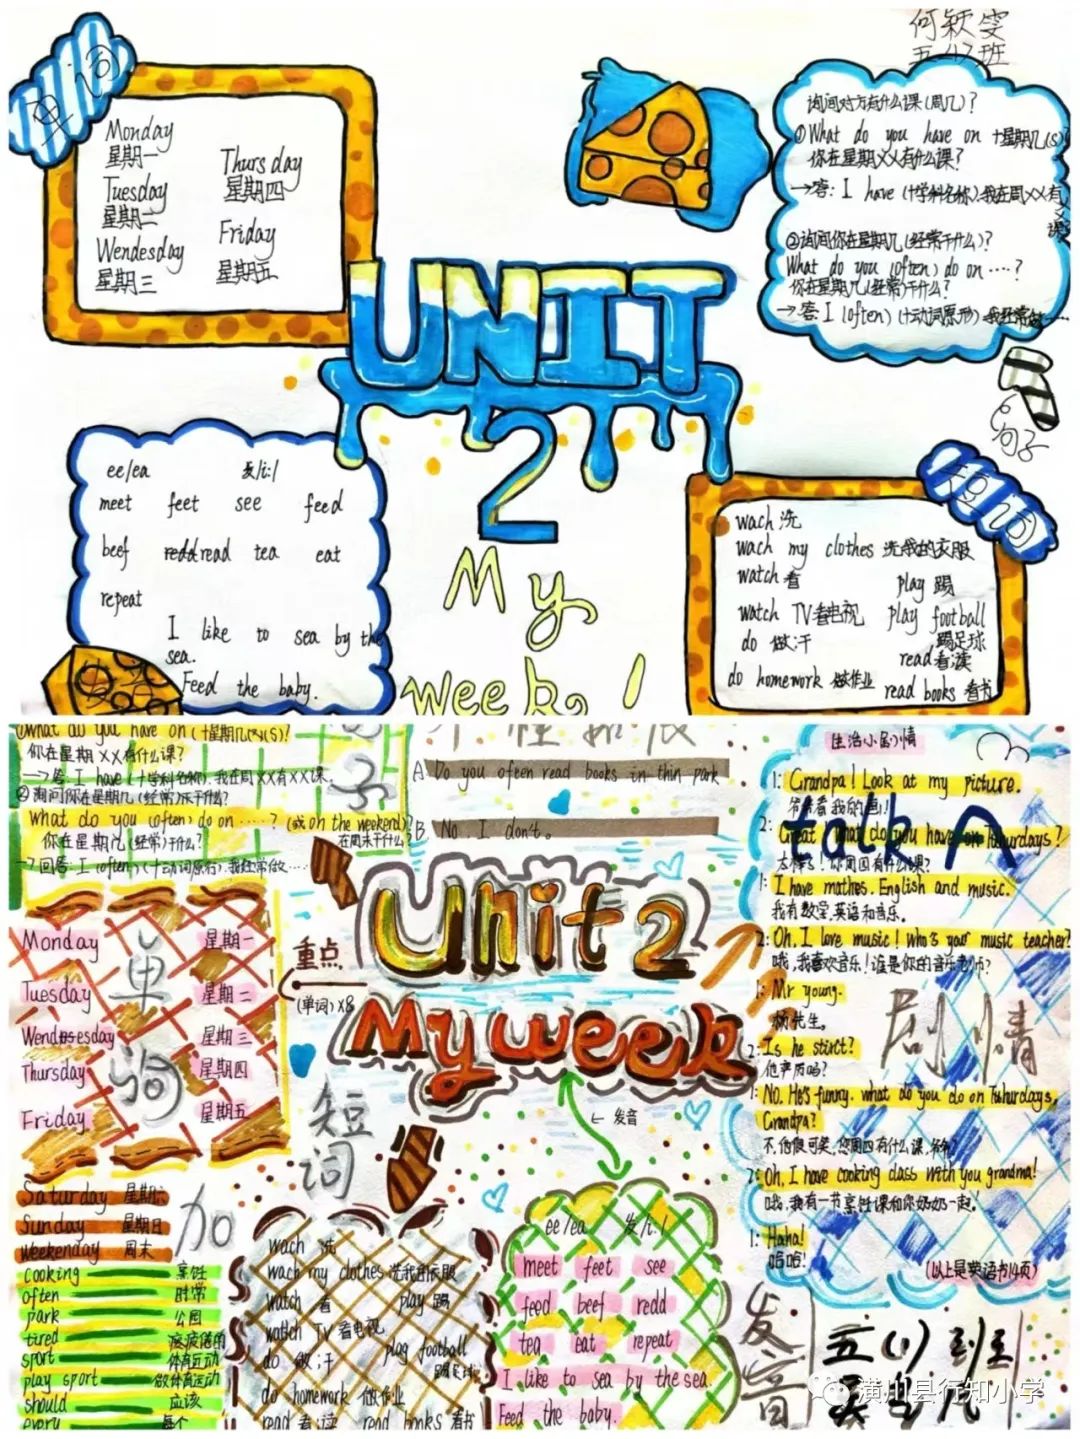 何颖雯
五(1)班
单词
Monday
星期一
Tuesday
星期二
Wendesday
星期三
Thursday
星期四
Friday
星期五
询问对方有什么课(周几)?
①What do you have on +星期几(s)?
你在星期XX有什么课?
→答: I have (+学科名称).我在周XX有
课
②询问你在星期几(经常干什么)?
What do you (often) do on ····?
你在星期几(经常)干什么?
→答: I (often) (+动词原形) 我经常做·····
句子
UNIT
2
My
week!
ee/ea 发/i:/
meet feet see feed
beef read tea eat
repeat
I like to sea by the
sea.
Feed the baby.
短词
wach 洗
wach my clothes 洗我的衣服
watch 看
watch TV看电视
do 做;干
do homework 做作业
play 踢
play football
踢足球
read看;读
read books 看书
①What do you have on (+星期几(s)?
你在星期XX有什么课?
→答: I have (+学科名称).我在周XX有XX课.
②询问你在星期几(经常)干什么?
What do you (often) do on ·····? (或on the weekend)?
你在星期几(经常)干什么? 在周末干什么?
→回答: I (often) (+动词原形).我经常做·····
子
A: Do you ofeen read books in thin park
B: No. I don't.
Unit 2
My week
重点
(单词)X8
←发音
单词
Monday 星期一
Tuesday 星期二
Wendsesday 星期三
Thursday 星期四
Friday 星期五
Saturday 星期六
Sunday 星期日
weekenday 周末
加
cooking 烹饪
often 时常
park 公园
tired 疲惫的
sport 体育运动
play sport 做体育运动
should 应该
every 每个
短词
wach 洗
wach my clothes 洗我的衣服
watch 看 play 踢
watch TV 看电视
do 做;干 plag football
踢足球
do homework 做作业
read 看;读 read books 看书
ee/ea 发/i:/
meet feet see
feed beef redd
tea eat repeat
I like to sea by the sea.
Feed the baby.
发音
生活小剧情
talk A
剧情
1: Grandpa! Look at my picture.
爷爷看我的画!
2: Great! What do you have on Tshurdays?
太棒了! 你周四有什么课?
1: I have mathes. English and music.
我有数学,英语和音乐。
2: Oh, I love music! Who's your music teacher?
哦,我喜欢音乐! 谁是你的音乐老师?
1: Mr young.
杨先生。
2: Is he stirct?
他严厉吗?
1: No. He's funny. what do you do on Tshurdays,
Grandpa?
不,他很可笑,您周四有什么课,爷爷?
2: Oh, I have cooking class with you grandma!
哦,我有一节烹饪课和你奶奶一起!
1: Haha!
哈哈!
(以上是英语书14页)
五(1)班
潢川县行知小学